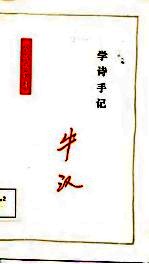 学诗手记
牛汉